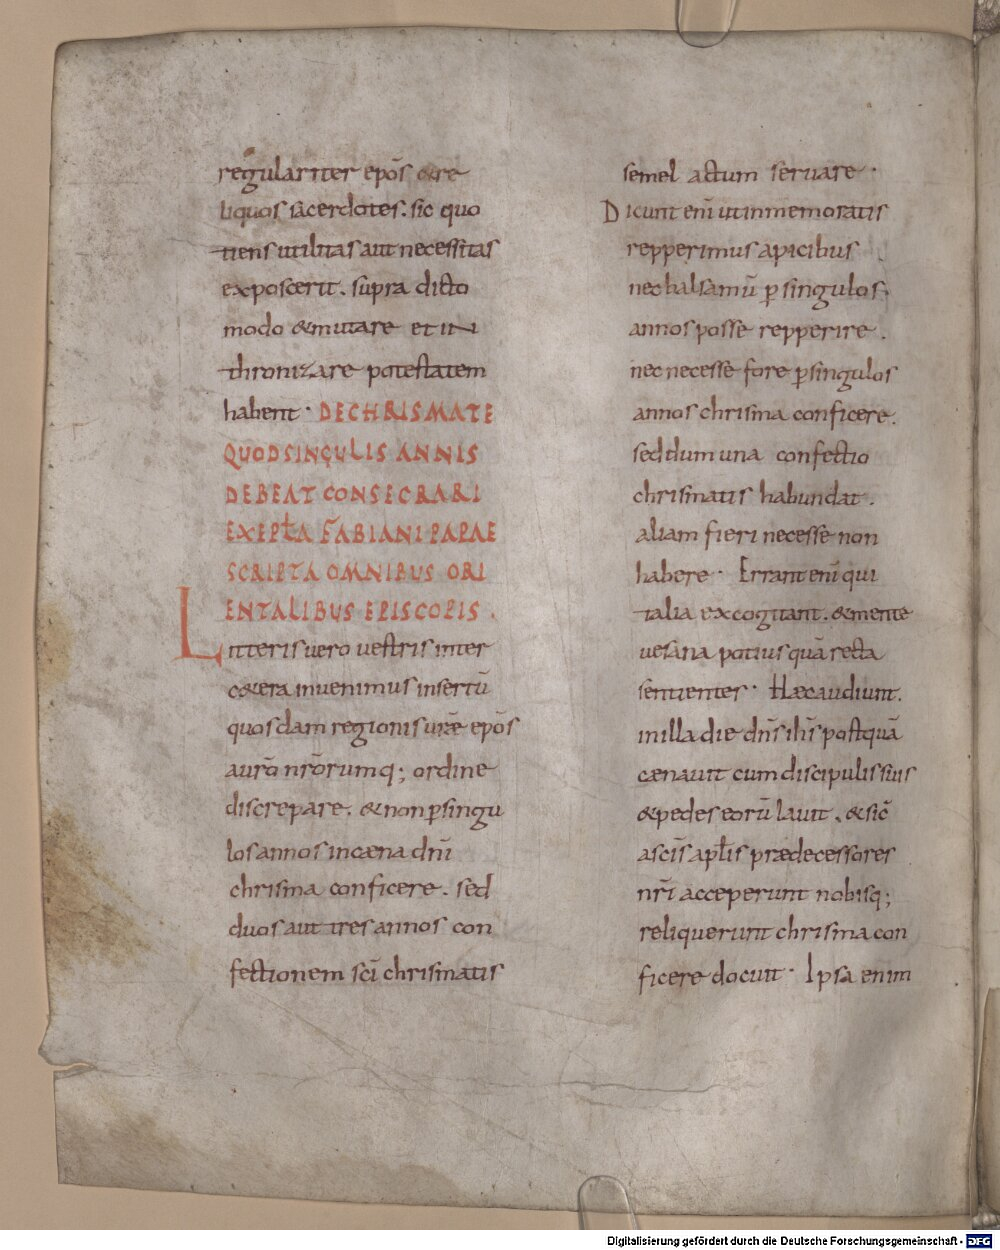 regulariter ep̄os & re
liquos sacerdotes. sic quo
tiens utilitas aut necessitas
exposcerit. supra dicto
modo & mutare et in
thronizare potestatem
habent · DE CHRISMATE
QUOD SINGULIS ANNIS
DEBEAT CONSECRARI
EXEPLA FABIANI PAPAE
SCRIPTA OMNIBUS ORI
ENTALIBUS EPISCOPIS .
Litteris vero vestris inter
c&era invenimus insertū
quosdam regionis vr̄ae ep̄os
a vr̄o nr̄orumq; ordine
discrepare. & non ꝑ singu
los annos in caena dn̄i
chrisma conficere. sed
duos aut tres annos con
fectionem sc̄i chrismatis
semel actum servare ·
Dicunt eni ut in memoratis
repperimus apicibus
nec balsamū ꝑ singulos
annos posse repperire .
nec necesse fore ꝑ singulos
annos chrisma conficere.
sed dum una confectio
chrismatis habundat .
aliam fieri necesse non
habere · Errant enī qui
talia excogitant. & mente
vesana potius quā recta
sentientes · Haec audiunt.
in illa die dn̄s ih̄s postquā
caenavit cum discipulis suis
& pedes eorū lavit . & sic̄
a sc̄is apl̄is praedecessores
nr̄i acceperunt nobisq;
reliquerunt chrisma con
ficere docuit · Ipsa enim
Digitalisierung gefördert durch die Deutsche Forschungsgemeinschaft - DFG